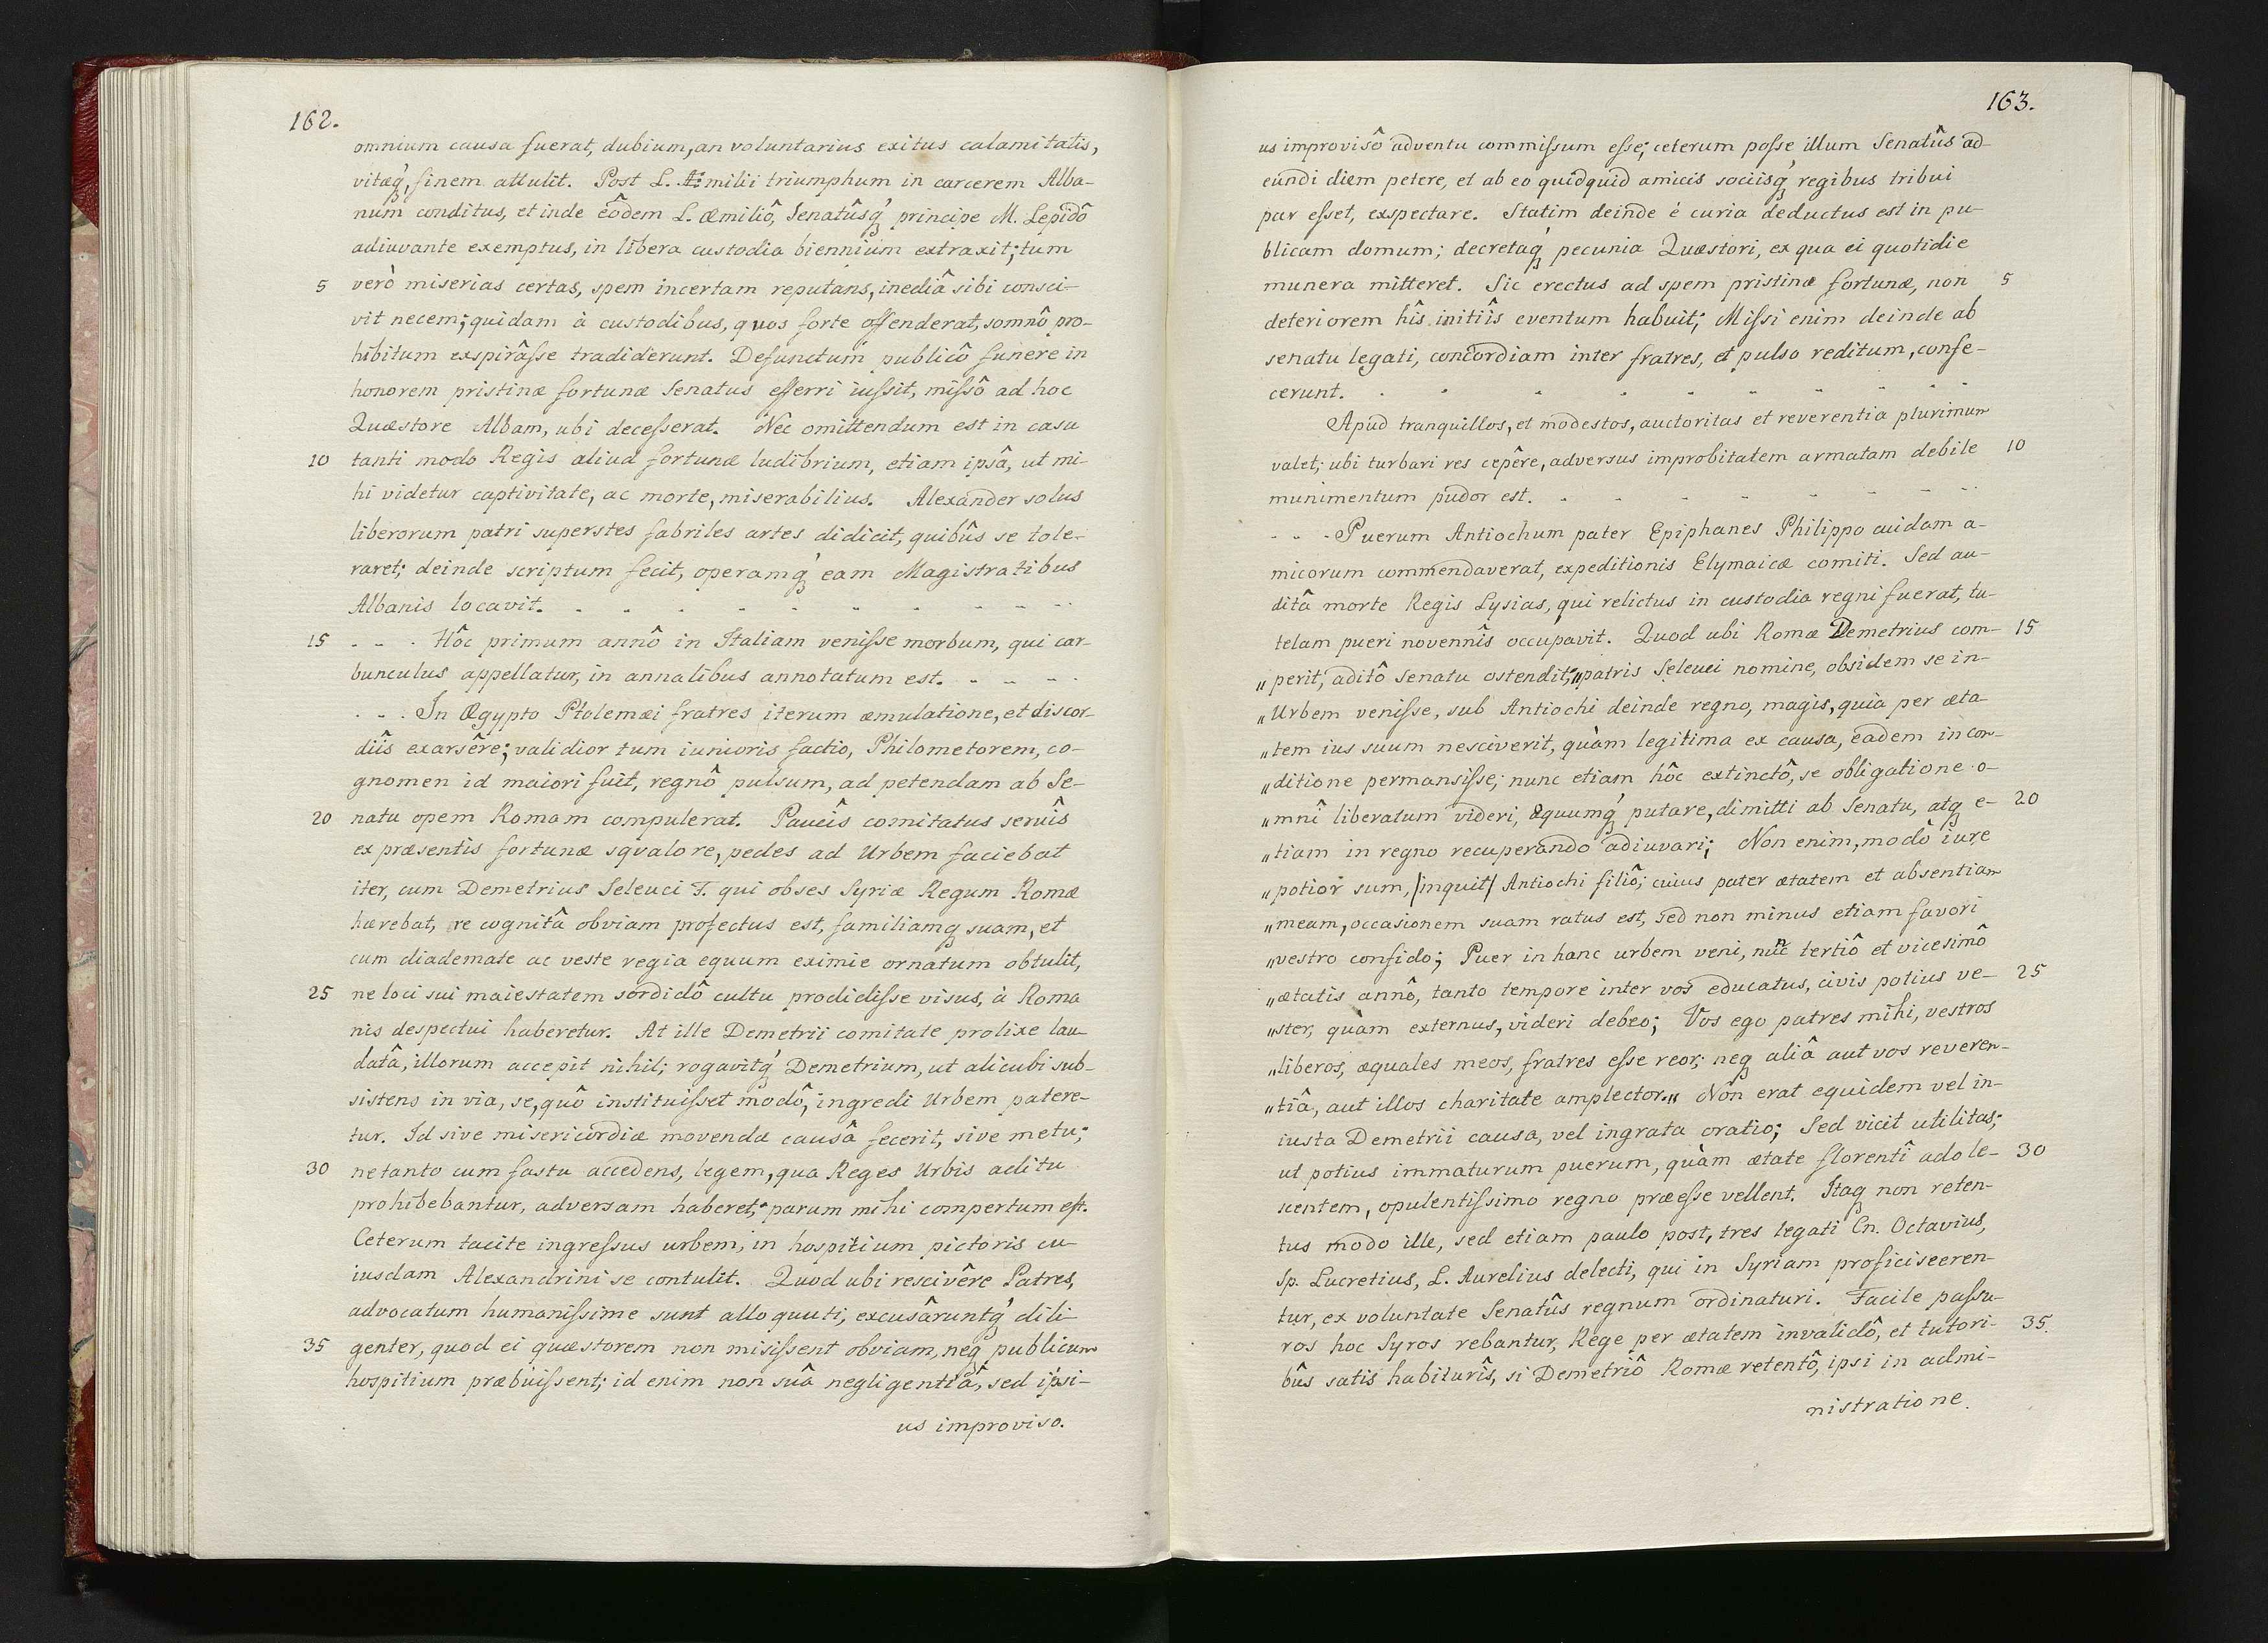 162.
omnium causa fuerat, dubium, an voluntarius exitus calamitatis,
vitæq́, finem attulit. Post L. Æmilii triumphum in carcerem Alba-
num conditus, et inde eôdem L. Æmiliô, Senatûsq́ principe M. Lepidô
adiuvante exemptus, in libera custodia biennium extraxit; tum
5 verò miserias certas, spem incertam reputans, inediâ sibi consci-
vit necem; quidam à custodibus, quos forte offenderat, somnô pro-
hibitum exspirâſse tradiderunt. Defunctum publicô funere in
honorem pristinæ fortunæ Senatus efferri iuſsit, miſsô ad hoc
Quæstore Albam, ubi deceſserat. Nec omittendum est in casu
10 tanti modo Regis aliud fortunæ ludibrium, etiam ipsâ, ut mi-
hi videtur captivitate, ac morte, miserabilius. Alexander solus
liberorum patri superstes fabriles artes didicit, quibûs se tole-
raret; deinde scriptum fecit, operamq́ eam Magistratibus
Albanis locavit. - - - - - - - - - -
15 - - - Hôc primum annô in Italiam veniſse morbum, qui car-
bunculus appellatur, in annalibus annotatum est. - - - -
- - - In Ægypto Ptolemæi fratres iterum æmulatione, et discor-
diîs exarsêre; validior tum iunioris factio, Philometorem, co-
gnomen id maiori fuit, regnô pulsum, ad petendam ab Se-
20 natu opem Romam compulerat. Paucîs comitatus servîs
ex præsentis fortunæ squalore, pedes ad Urbem faciebat
iter, cum Demetrius Seleuci F. qui obses Syriæ Regum Romæ
hærebat, re cognitâ obviam profectus est, familiamq suam, et
cum diademate ac veste regia equum eximie ornatum obtulit,
25 ne loci sui maiestatem sordidô cultu prodidiſse visus, à Roma
nis despectui haberetur. At ille Demetrii comitate prolixe lau-
datâ, illorum accepit nihil; rogavitq́ Demetrium, ut alicubi sub-
sistens in via, se, quô instituiſset modô, ingredi Urbem patere-
tur. Id sive misericordiæ movendæ causâ fecerit, sive metu;
30 ne tanto cum fastu accedens, legem, qua Reges Urbis aditu
prohibebantur, adversam haberet, parum mihi compertum eſt.
Ceterum tacite ingreſsus urbem, in hospitium pictoris cu-
iusdam Alexandrini se contulit. Quod ubi rescivêre Patres,
advocatum humaniſsime sunt alloquuti, excusâruntq́ dili-
35 genter, quod ei quæstorem non misiſsent obviam, neq publicum
hospitium præbuiſsent; id enim non suâ negligentiâ, sed ipsi-
us improviso.
163.
us improvisô adventu commiſsum eſse; ceterum poſse illum Senatûs ad-
eundi diem petere, et ab eo quidquid amicis sociisq́ regibus tribui
par eſset, exspectare. Statim deinde è curia deductus est in pu-
blicam domum; decretaq́ pecunia Quæstori, ex qua ei quotidie
munera mitteret. Sic erectus ad spem pristinæ fortunæ, non 5
deteriorem hîs initiîs eventum habuit; Miſsi enim deinde ab
senatu legati, concordiam inter fratres, et pulso reditum, confe-
cerunt. - - - - - - - - - -
Apud tranquillos, et modestos, auctoritas et reverentia plurimum
valet; ubi turbari res cepêre, adversus improbitatem armatam debile 10
munimentum pudor est. - - - - - - - - -
- - - Puerum Antiochum pater Epiphanes Philippo cuidam a-
micorum commendaverat, expeditionis Elymaicæ comiti. Sed au-
ditâ morte Regis Lysias, qui relictus in custodia regni fuerat, tu-
telam pueri novennîs occupavit. Quod ubi Romæ Demetrius com- 15
„perit, aditô Senatu ostendit, „patris Seleuci nomine, obsidem se in-
„Urbem veniſse, sub Antiochi deinde regno, magis, quia per æta-
„tem ius suum nesciverit, quàm legitima ex causa, eadem in con-
„ditione permansiſse; nunc etiam hôc extinctô, se obligatione o-
„mnî liberatum videri, æquumq́ putare, dimitti ab Senatu, atq e- 20
„tiam in regno recuperando adiuvari; Non enim, modô iure
„potior sum, /inquit/ Antiochi filiô; cuius pater ætatem et absentiam
„meam, occasionem suam ratus est, sed non minus etiam favori
„vestro confido; Puer in hanc urbem veni, nūc tertiô et vicesimô
„ætatis annô, tanto tempore inter vos educatus, civis potius ve- 25
„ster, quàm externus, videri debeo; Vos ego patres mihi, vestros
„liberos, æquales meos, fratres eſse reor; neq aliâ aut vos reveren-
„tiâ, aut illos charitate amplector.„ Non erat equidem vel in-
iusta Demetrii causa, vel ingrata oratio; Sed vicit utilitas;
ut potius immaturum puerum, quàm ætate florentî adole- 30
scentem, opulentiſsimo regno præeſse vellent. Itaq non reten-
tus modo ille, sed etiam paulo post, tres legati Cn. Octavius,
Sp. Lucretius, L. Aurelius delecti, qui in Syriam proficisceren-
tur, ex voluntate Senatûs regnum ordinaturi. Facile paſsu-
ros hoc Syros rebantur, Rege per ætatem invalidô, et tutori- 35.
bûs satis habiturîs, si Demetriô Romæ retentô, ipsi in admi-
nistratione.